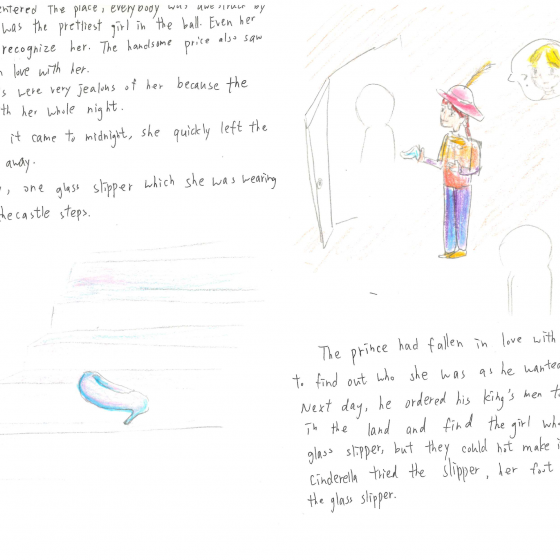 entered The place, everybody was awestruck by
was the prettiest girl in the ball. Even her
recognize her. The handsome price also saw
love with her.
s were very jealous of her because the
th her whole night.
it came to midnight, she quickly left the
away.
, one glass slipper which she was wearing
the castle steps.
The prince had fallen in love with
to find out who she was as he wanted
Next day, he ordered his king's men to
in the land and find the girl who
glass slipper, but they could not make i
Cinderella tried the slipper, her foot
the glass slipper.